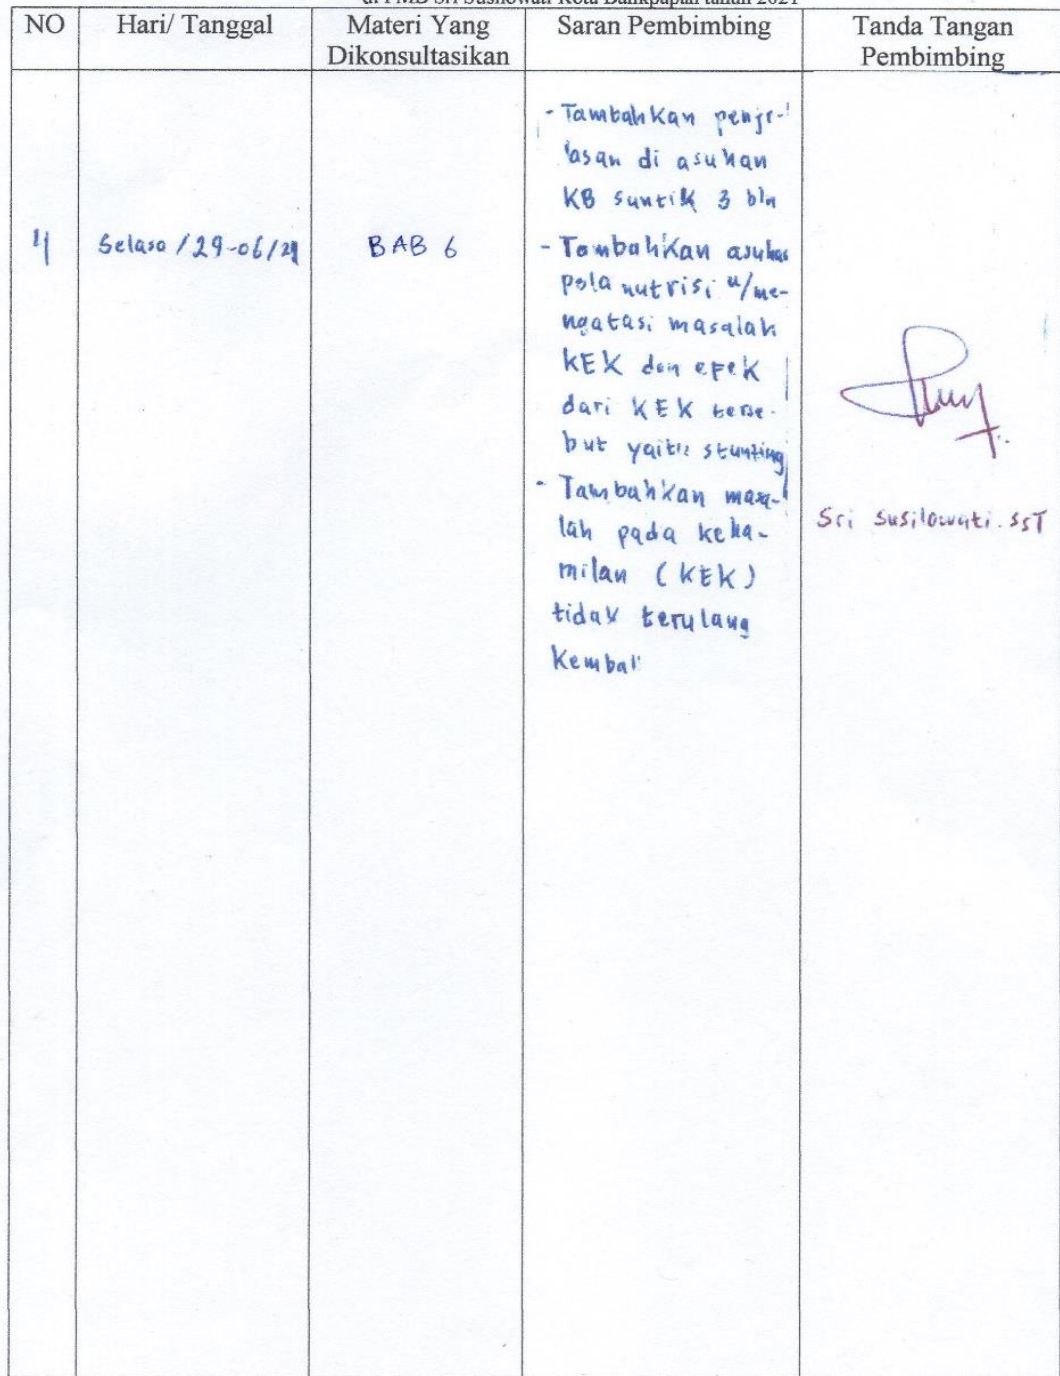 di PMB Sri Susilowati Kota Balikpapan tahun 2021
NO
Hari/ Tanggal
Materi Yang
Dikonsultasikan
Saran Pembimbing
Tanda Tangan
Pembimbing
4
Selasa / 29-06/21
BAB 6
- Tambahkan penje-
lasan di asuhan
KB suntik 3 bln
- Tambahkan asuhan
pola nutrisi u/me-
ngatasi masalah
KEK dan efek
dari KEK terse-
but yaitu stunting
- Tambahkan masa-
lah pada keha-
milan (KEK)
tidak terulang
Kembali
Sri Susilowati.SST